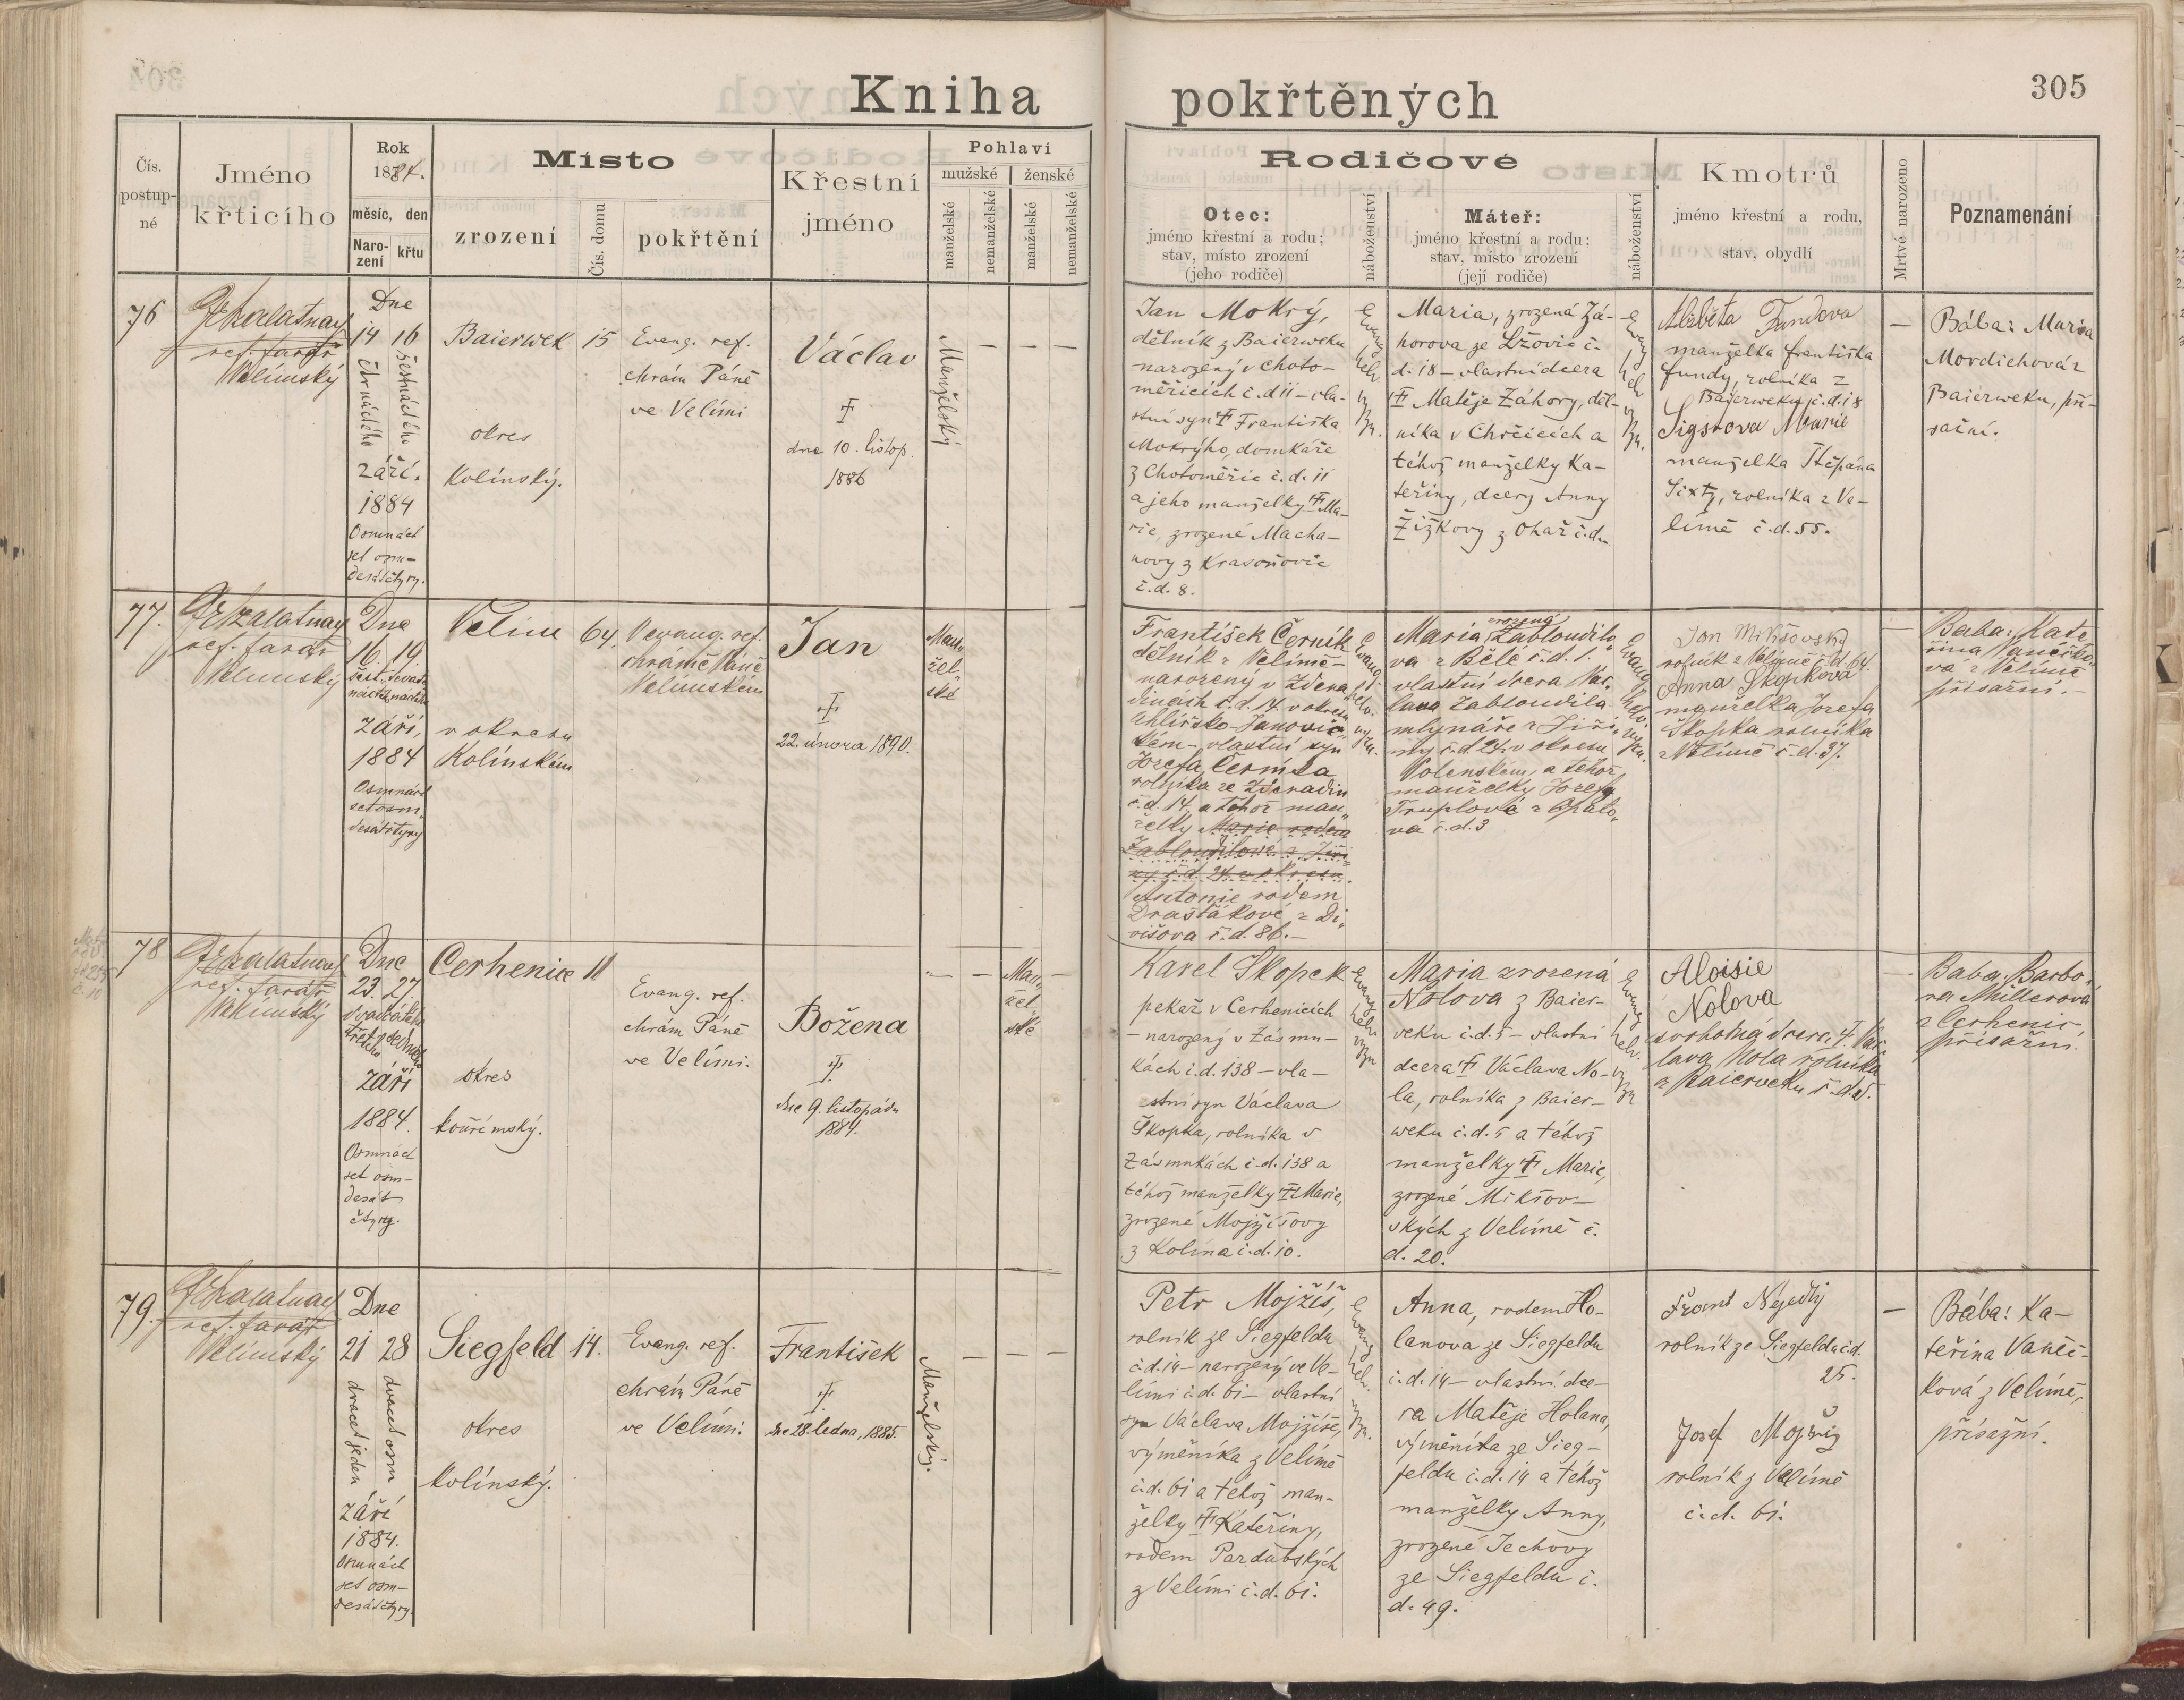 Kniha pokřtěných
305
Čís. postup- né
Jméno křticího
Rok 1884.
měsíc, den
Naro- zení
křtu
Místo
zrození
Čís. domu
pokřtění
Křestní jméno
Pohlaví
mužské
ženské
manželské
nemanželské
manželské
nemanželské
Rodičové
Otec:
jméno křestní a rodu;
stav, místo zrození
(jeho rodiče)
náboženství
Máteř:
jméno křestní a rodu;
stav, místo zrození
(její rodiče)
náboženství
Kmotrů
jméno křestní a rodu,
stav, obydlí
Mrtvé narozeno
Poznamenání
76
ref. farář
Velímský
Dne
14 16
čtrnáctého
šestnáctého
září.
1884
Osmnáct
set osm-
desát čtyry.
Baierwek
okres
Kolínský.
15
Evang. ref.
chrám Páně
ve Velími
Václav
dne 10. listop.
1886
Manželský
— — —
Jan Mokrý,
dělník z Baierweku
narozený v Choto-
měřicích č. d 11 – vla-
stní syn Františka
Mokrýho, domkáře
z Chotoměřic č. d. 11
a jeho manželky Ma-
rie, zrozené Macha-
novy z Krasoňovic
č. d. 8.
Evang. helv. vyzn.
Maria, zrozená Zá-
horova ze Lžovic č.
d. 18 – vlastní dcera
Matěje Záhory, děl-
níka v Chrčicích a
téhož manželky Ka-
teřiny, dcery Anny
Žižkovy z Ohař č. d.
Evang. helv. vyzn.
Alžběta Fundova
manželka Františka
Fundy, rolníka z
Baierweku č. d. 18
Marie
manželka Štěpána
Sixty, rolníka z Ve-
límě č. d. 55.
—
Bába: Maria
Mordichová z
Baierweku, pří-
sažní.
77.
ref. farář
Velimský
Dne
16. 19
září,
1884
Osmnáct
set osm
desát čtyry
Velim
v okresu
Kolínském
64.
V evang. ref.
chrámě Páně
Velimském
Jan
22. února 1890.
Man„
žel„
ské
František Černík
dělník z Velimě–
narozený v Zdera„
dinách č. d. 14. v okresu
Uhlířsko-Janovic„
kém – vlastní syn
Josefa Černíka
rolníka ze Zderadin
č. d 14. a tohož man„
želky Marie rodem
Zabloudilové z Jiři„
ny č. d. 24. v okresu
Antonie rodem
Drašťákové z Di„
višova č. d. 86. –
Evang. helv. vyzn.
zrozená
Maria Zabloudilo„
va z Bělé č. d. 1.
vlastní dcera Vác„
lava Zabloudila
mlynáře z Jiři„
ny č. d 24. v okresu
a tehož
manželky Josefy
z Opato„
va č. d. 3
Evang. helv. vyzn.
Jan Mikšovský
rolník z Velimě č. d. 64.
Anna Skopkova
manželka Josefa
Skopka rolníka
z Velimě č. d. 37.
Baba: Kate
řina Vaněčko„
vá z Velimě
přísažní. –
78
ref. farář
Velímský
Dne
23. 27.
září
1884.
Osmnáct
set osm-
desát
čtyry.
Cerhenice
okres
kouřimský.
11
Evang. ref.
chrám Páně
ve Velími.
Božena
dne 9. listopádu
1884.
— —
Man„
žel„
ské
—
Karel Skopek
pekař v Cerhenicích
– narozený v Zásmu-
kách č. d. 138 – vla-
stní syn Václava
Skopka, rolníka v
Zásmukách č. d. 138 a
téhož manželky Marie,
zrozené Mojžíšovy
z Kolína č. d. 10.
Evang. helv. vyzn
Maria zrozená
Nolova z Baier-
veku č. d. 5 – vlastní
dcera Václava No-
la, rolníka z Baier-
weku č. d. 5 a téhož
manželky Marie,
zrozené Mikšov-
ských z Velímě č.
d. 20.
Evang. helv. vyzn
Aloisie
Nolova
svobodná dcera Vác„
lava Nola rolníka
z Baierveku č. d. 5.
Baba: Barbo„
ra Millerova
z Cerhenic,
přísažní.
79.
ref. farář
Velímský
Dne
21 28
dvacet jeden
dvacet osm
září
1884.
Osmnáct
set osm-
desát čtyry.
Siegfeld
okres
Kolínský.
14.
Evang. ref.
chrám Páně
ve Velími:
František
dne 28. ledna, 1885.
Manželský.
— — —
Petr Mojžíš,
rolník ze Siegfeldu
č. d. 14 – narozený ve Ve-
lími č. d. 61 – vlastní
syn Václava Mojžíše,
výměníka z Velímě
č. d. 61 a téhož man-
želky Kateřiny,
rodem Pardubských
z Velími č. d. 61.
Evang. helv. vyzn.
Anna, rodem Ho-
lanova ze Siegfeldu
č. d. 14 – vlastní dce-
ra Matěje Holana,
výměníka ze Sieg-
feldu č. d. 14 a téhož
manželky Anny,
zrozené Jechovy
ze Siegfeldu č.
d. 49.
Nejedlý
rolník ze Siegfeldu č. d.
25.
Josef Mojžíš
rolník z Velímě
č. d. 61.
—
Bába: Ka-
teřina Vaněč-
ková z Velímě,
přísažní.